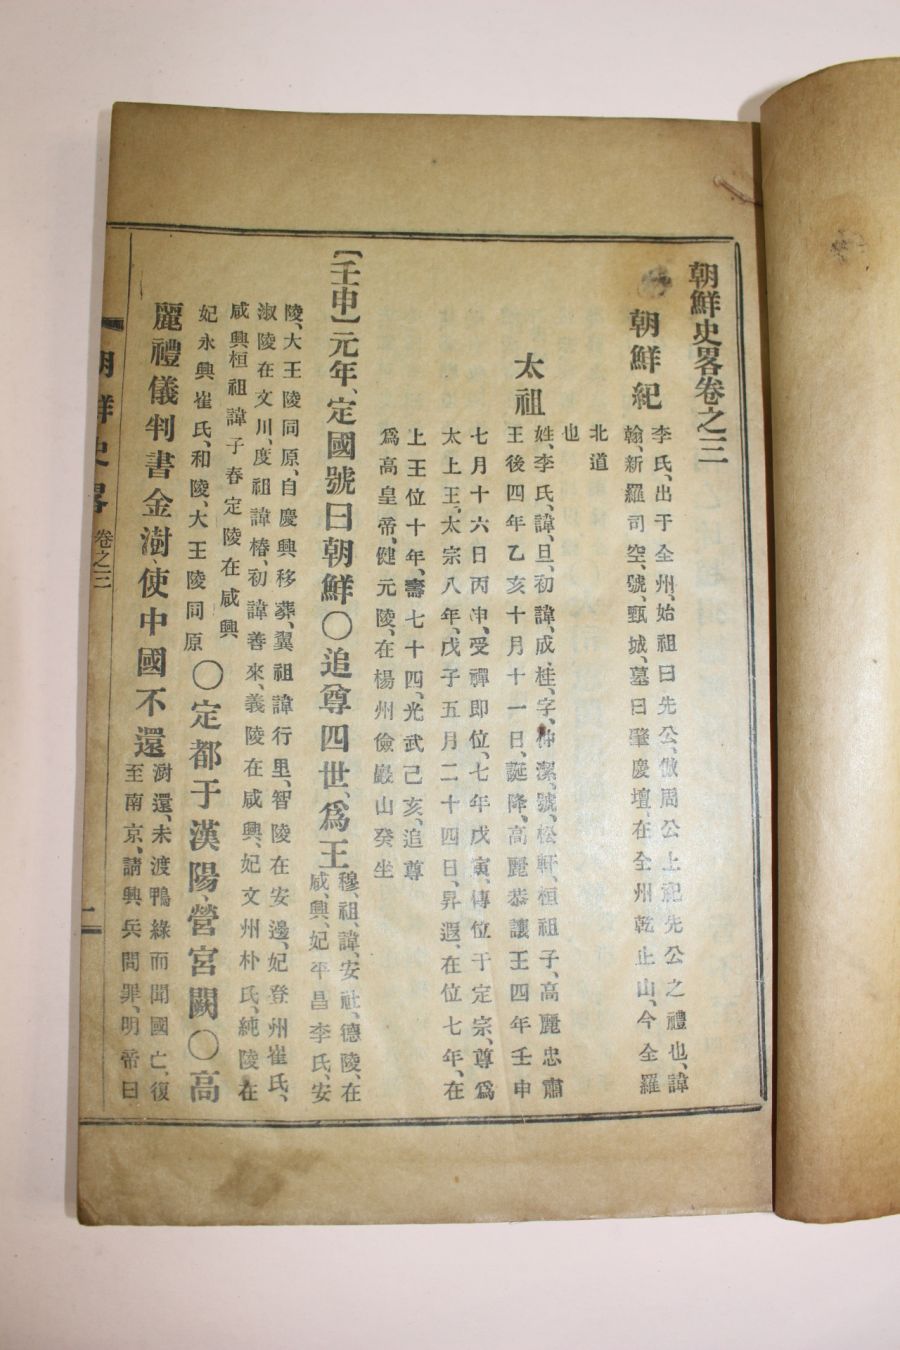 朝鮮史畧卷之三
朝鮮紀
李氏、出于全州、始祖曰先公、倣周公上祀先公之禮也、諱
翰、新羅司空、號、甄城、墓曰肇慶壇、在全州乾止山、今全羅
北道
也
太祖
姓、李氏、諱、旦、初諱、成、桂、字、仲潔、號、松軒、桓祖子、高麗忠肅
王後四年乙亥十月十一日、誕降、高麗恭讓王四年壬申
七月十六日丙申、受禪即位、七年戊寅、傳位于定宗、尊爲
太上王、太宗八年、戊子五月二十四日、昇遐、在位七年、在
上王位十年、壽七十四、光武己亥、追尊
爲高皇帝、健元陵、在楊州儉巖山癸坐
【壬申】元年、定國號曰朝鮮〇追尊四世、爲王
穆、祖、諱、安社、德陵、在
咸、興、妃平昌李氏、安
陵、大王陵同原、自慶興移葬、翼祖諱行里、智陵在安邊、妃登州崔氏、
淑陵在文川、度祖諱椿、初諱善來、義陵在咸興、妃文州朴氏、純陵在
咸興桓祖諱子春定陵在咸興
妃永興崔氏、和陵、大王陵同原
〇定都于漢陽、營宮闕〇高
麗禮儀判書金澍、使中國不還
澍還、未渡鴨綠而聞國亡、復
至南京、請興兵問罪、明帝曰
朝鮮史畧
卷之三
二